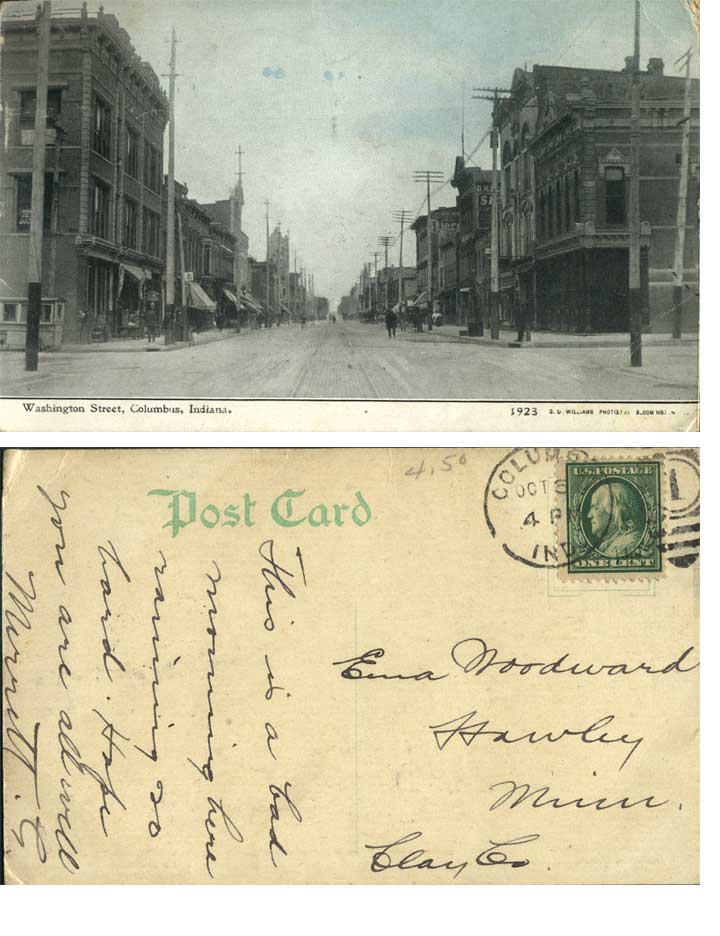 Washington Street, Columbus, Indiana.
1923
Post Card
4.50
OCT
4 P
IND
U.S. POSTAGE
ONE CENT
1
This is a bad
morning here
raining so
hard. Hope
you are all well
Merritt. C.
Ema Woodward
Hawley
Minn.
Clay Co.